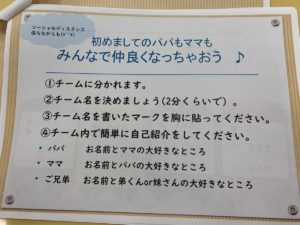 ソーシャルディスタンス
保ちながらも(^^)
初めましてのパパもママも
みんなで仲良くなっちゃおう ♪
①チームに分かれます。
②チーム名を決めましょう(2分くらいで)。
③チーム名を書いたマークを胸に貼ってください。
④チーム内で簡単に自己紹介をしてください。
• パパ お名前とママの大好きなところ
• ママ お名前とパパの大好きなところ
• ご兄弟 お名前と弟くんor妹さんの大好きなところ